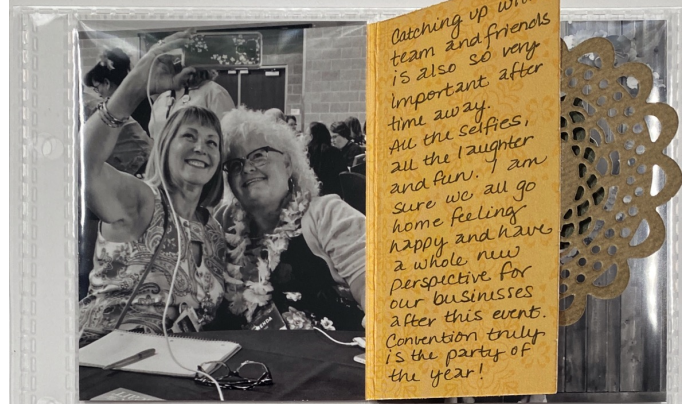 Catching up with
team and friends
is also so very
important after
time away.
All the selfies,
all the laughter
and fun. I am
sure we all go
home feeling
happy and have
a whole new
perspective for
our businesses
after this event.
Convention truly
is the party of
the year!